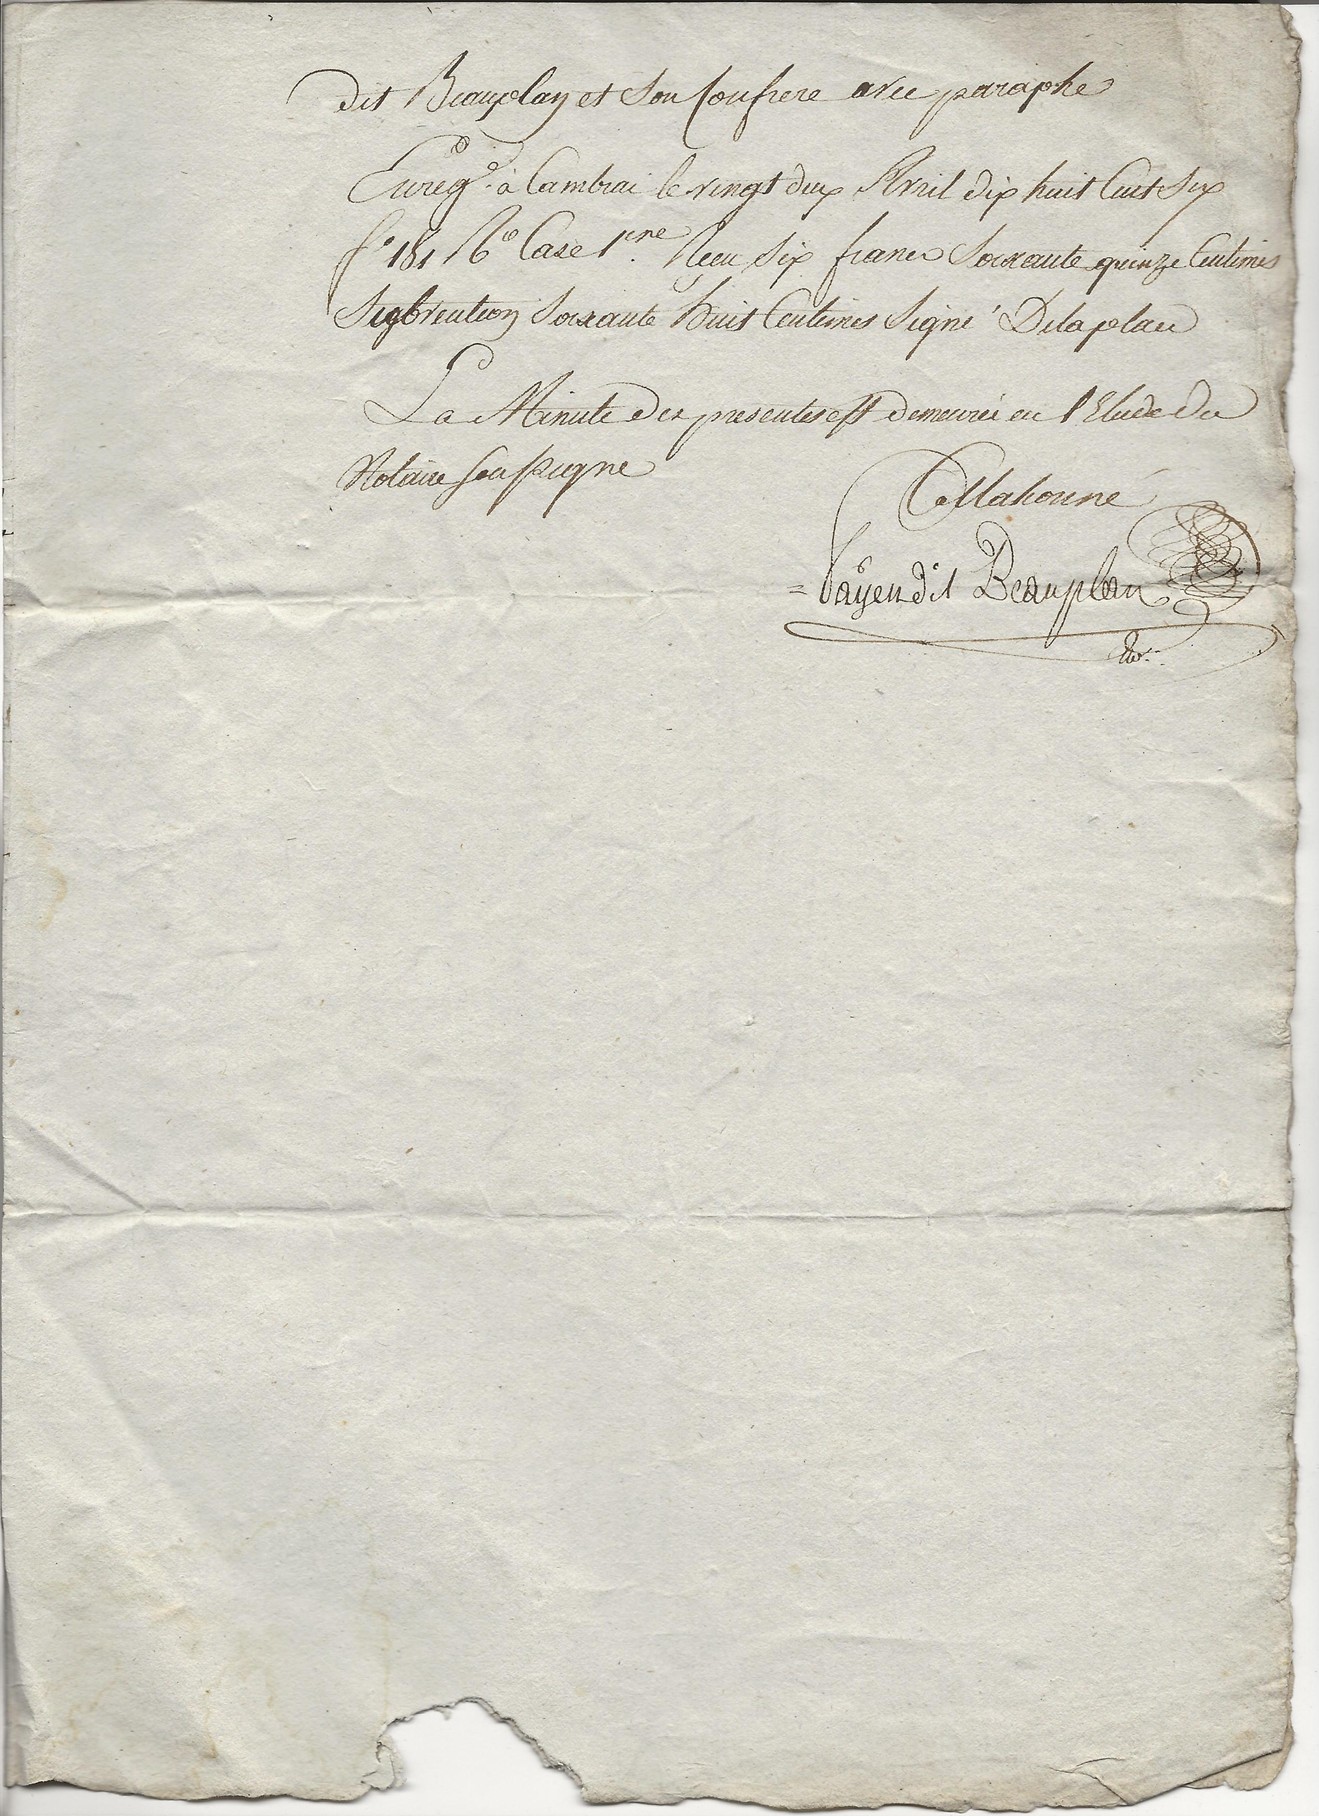 dit Beauplan et Son Confrere avec paraphe
Enregé. à Cambrai le vingt deux Avril dix huit Cent Six
fo 181 Vo Case 1ere Reçu Six francs Soixante quinze Centimes
Subvention Soixante huit Centimes Signé Delaplace
La Minute des presentes est demeurée en l'Etude du
Notaire Soussigné
Mahonné
Payen dit Beauplan